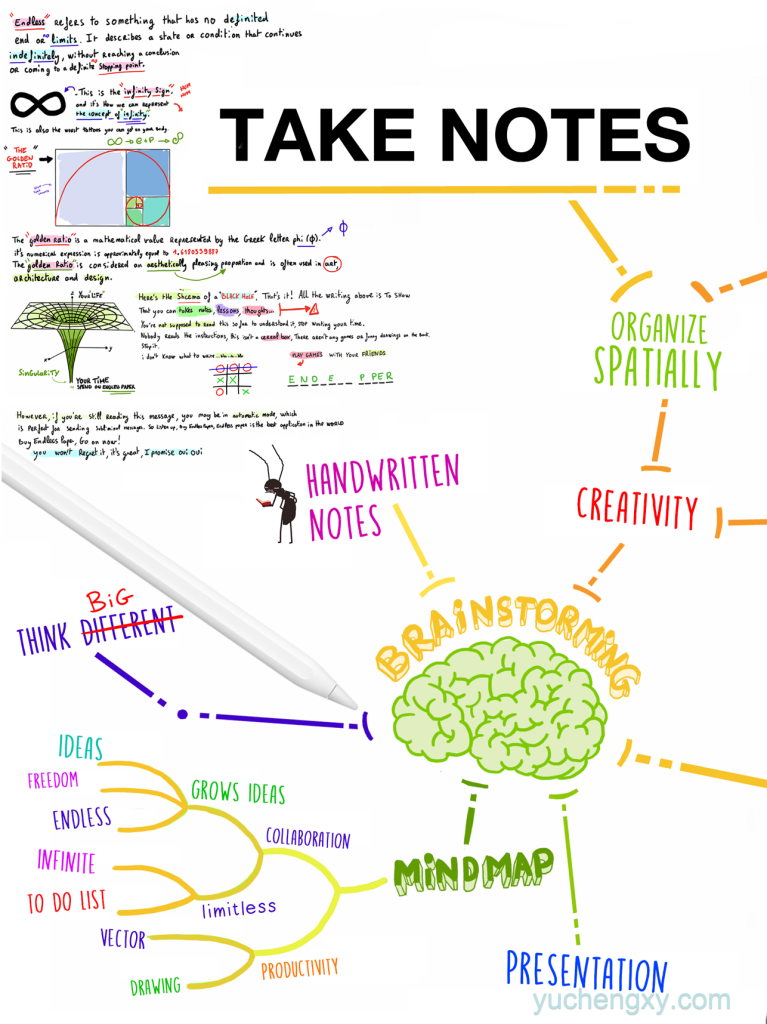 "Endless" refers to something that has no definited
end or limits. It describes a state or condition that continues
indefinitely, without reaching a conclusion
or coming to a definite stopping point.
This is the "infinity sign"
and it's how we can represent
the concept of infinity.
This is also the worst tattoos you can get on your body.
"THE
GOLDEN
RATIO"
The "golden ratio" is a mathematical value represented by the Greek letter phi (ϕ).
ϕ
it's numerical expression is approximately equal to 1.6180339887
The "golden Ratio" is considered an aesthetically pleasing proportion and is often used in art,
architecture and design.
YOUR LIFE
z
y
x
SINGULARITY
YOUR TIME
SPEND ON ENDLESS PAPER
Here's the Shcema of a "BLACK HOLE". That's it! All the writing above is to show
That you can takes notes, lessons, thoughts...
You're not supposed to read this so far to understand it, stop wasting your time.
Nobody reads the instructions, this isn't a cereal box, there aren't any games or funny drawings on the back.
Stop it.
i don't know what to write
PLAY GAMES WITH YOUR FRIENDS
E N D E _ _ P PER
However, if you're still reading this message, you may be in automatic mode, which
is perfect for sending subliminal messages. So listen up, Buy Endless Paper, Endless paper is the best application in the WORLD
Buy Endless Paper, Go on now!
you won't Regret it, it's great, I promise oui oui
TAKE NOTES
ORGANIZE
SPATIALLY
CREATIVITY
HANDWRITTEN
NOTES
BRAINSTORMING
BIG
THINK DIFFERENT
IDEAS
FREEDOM
ENDLESS
GROWS IDEAS
COLLABORATION
INFINITE
TO DO LIST
limitless
VECTOR
DRAWING
PRODUCTIVITY
MINDMAP
PRESENTATION
yuchengxy.com